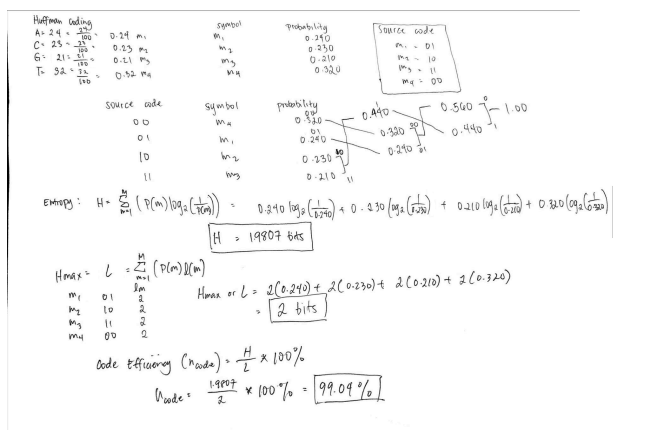 Huffman Coding
A = 24 = 24/100 = 0.24 m1
C = 23 = 23/100 = 0.23 m2
G = 21 = 21/100 = 0.21 m3
T = 32 = 32/100 = 0.32 m4
symbol probability
m1 0.240
m2 0.230
m3 0.210
m4 0.320
source code
m1 = 01
m2 = 10
m3 = 11
m4 = 00
source code symbol probability
00 m4 0.320 00 0.440 0.560 0 1.00
01 m1 0.240 01 0.320 00 0.440 1
10 m2 0.230 10 0.240 01
11 m3 0.210 11
Entropy: H = M Σ m=1 (P(m) log2 (1/P(m))) = 0.240 log2 (1/0.240) + 0.230 log2 (1/0.230) + 0.210 log2 (1/0.210) + 0.320 log2 (1/0.320)
H = 1.9807 bits
Hmax = L = M Σ m=1 (P(m) l(m))
lm
m1 01 2
m2 10 2
m3 11 2
m4 00 2
Hmax or L = 2(0.240) + 2(0.230) + 2(0.210) + 2(0.320)
= 2 bits
Code Efficiency (ηcode) = H/L × 100%
ηcode = 1.9807/2 × 100% = 99.04%